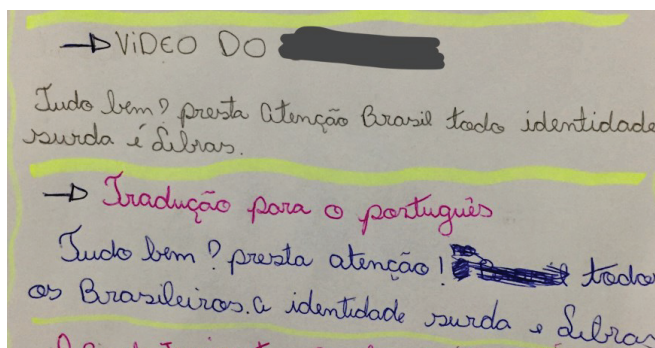 → VIDEO DO
Tudo bem? presta atenção Brasil todo identidade
surda é Libras.
→ Tradução para o português
Tudo bem? presta atenção! todos
os Brasileiros. a identidade surda e Libras